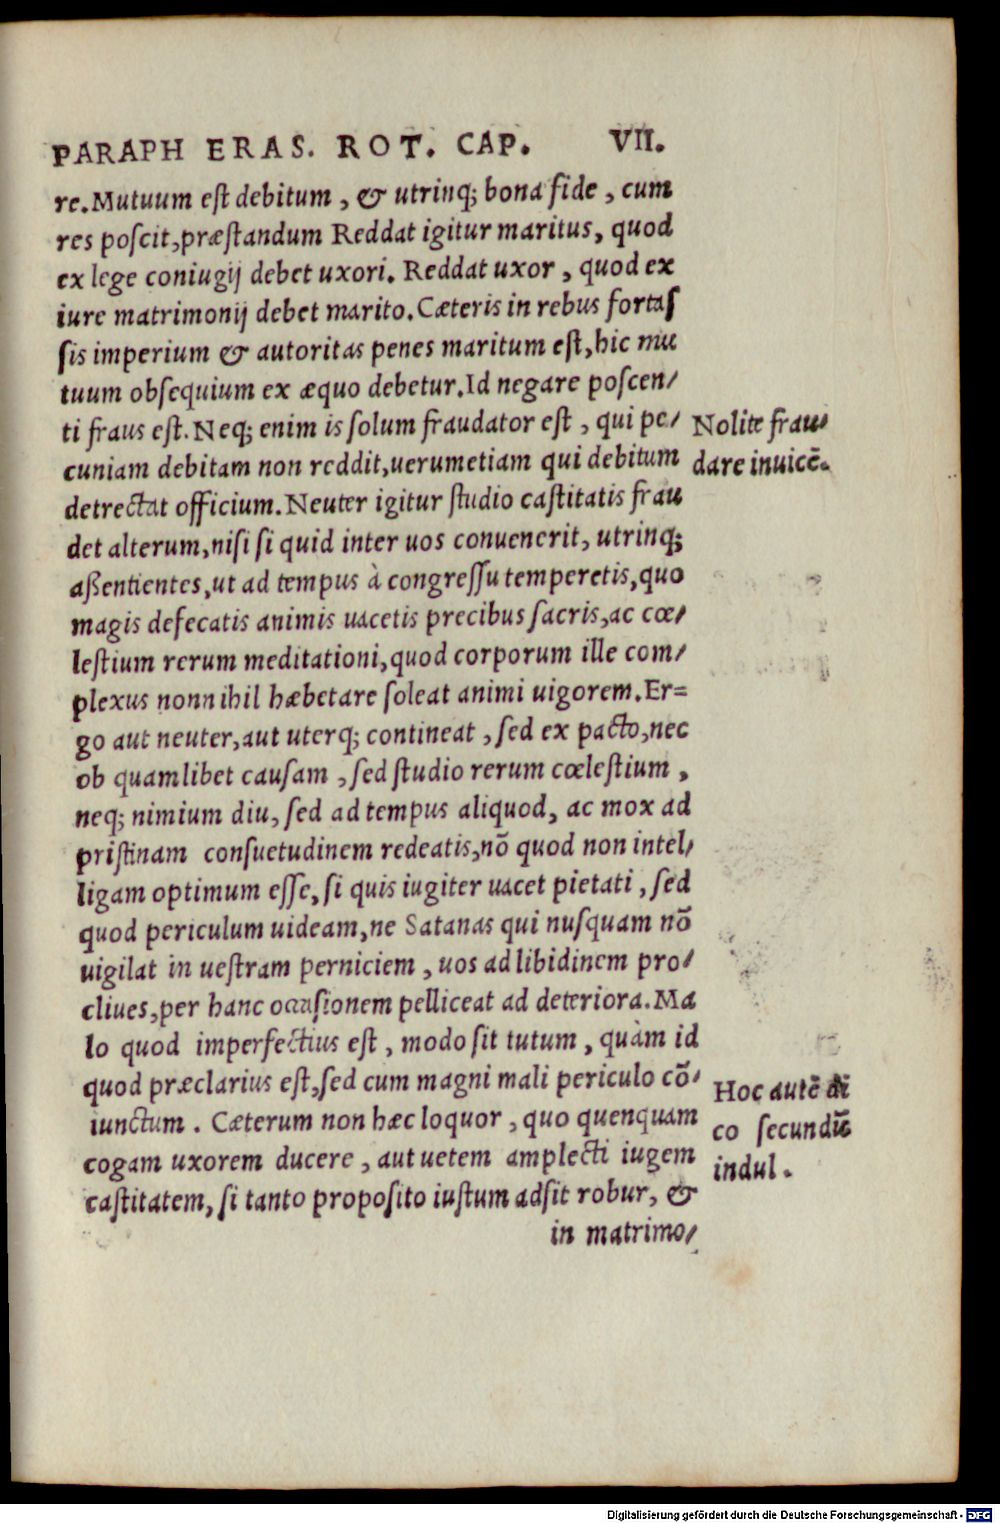 PARAPH ERAS. ROT. CAP. VII.
re. Mutuum eſt debitum, & utrinq; bona fide, cum
res poſcit, præſtandum Reddat igitur maritus, quod
ex lege coniugij debet uxori. Reddat uxor, quod ex
iure matrimonij debet marito. Cæteris in rebus fortaſ
ſis imperium & autoritas penes maritum eſt, hic mu
tuum obſequium ex æquo debetur. Id negare poſcen/
ti fraus eſt. Neq; enim is ſolum fraudator eſt, qui pe/
cuniam debitam non reddit, uerumetiam qui debitum
detrectat officium. Neuter igitur ſtudio caſtitatis frau
det alterum, niſi ſi quid inter uos conuenerit, utrinq;
aßentientes, ut ad tempus à congreſſu temperetis, quo
magis defecatis animis uacetis precibus ſacris, ac cœ/
leſtium rerum meditationi, quod corporum ille com/
plexus nonnihil hæbetare ſoleat animi uigorem. Er=
go aut neuter, aut uterq; contineat, ſed ex pacto, nec
ob quamlibet cauſam, ſed ſtudio rerum cœleſtium,
neq; nimium diu, ſed ad tempus aliquod, ac mox ad
priſtinam conſuetudinem redeatis, nō quod non intel/
ligam optimum eſſe, ſi quis iugiter uacet pietati, ſed
quod periculum uideam, ne Satanas qui nuſquam nō
uigilat in ueſtram perniciem, uos ad libidinem pro/
cliues, per hanc occaſionem pelliceat ad deteriora. Ma
lo quod imperfectius eſt, modo ſit tutum, quàm id
quod præclarius eſt, ſed cum magni mali periculo cō/
iunctum. Cæterum non hæc loquor, quo quenquam
cogam uxorem ducere, aut uetem amplecti iugem
caſtitatem, ſi tanto propoſito iuſtum adſit robur, &
in matrimo/
Nolite frau/
dare inuicē.
Hoc autē di
co ſecundū
indul.
Digitalisierung gefördert durch die Deutsche Forschungsgemeinschaft - DFG